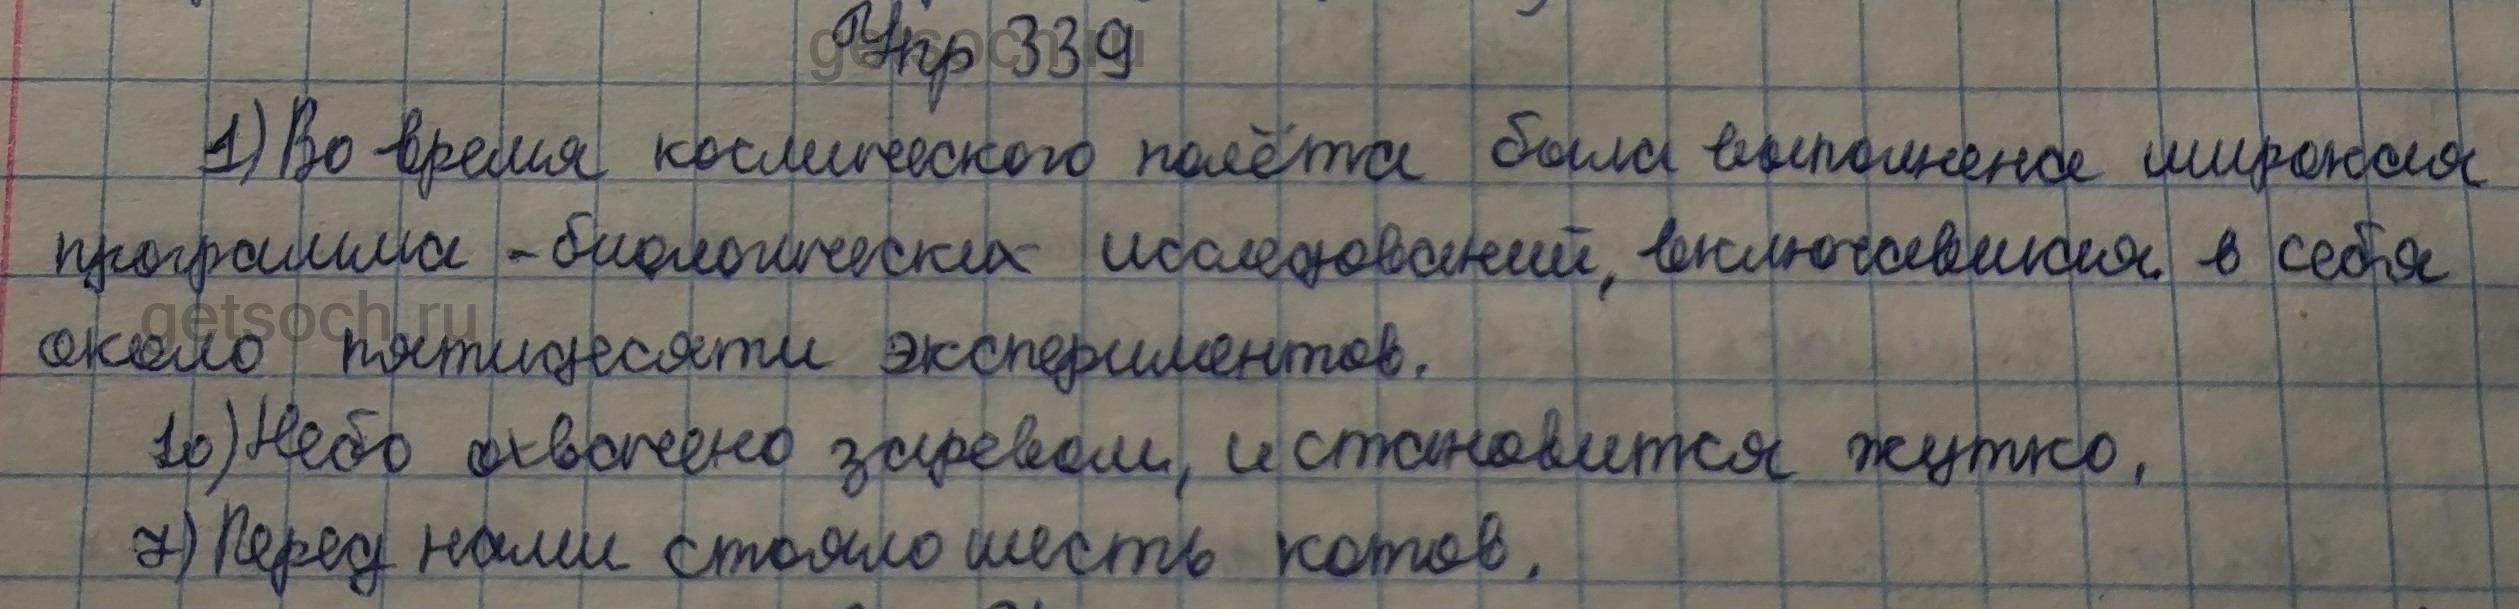 Упр 339
1) Во время космического полёта была выполнена широкая
программа биологических исследований, включавшая в себя
около пятидесяти экспериментов.
10) Небо охвачено заревом, и становится жутко.
7) Перед нами стояло шесть котов.
getsoch.ru
getsoch.ru